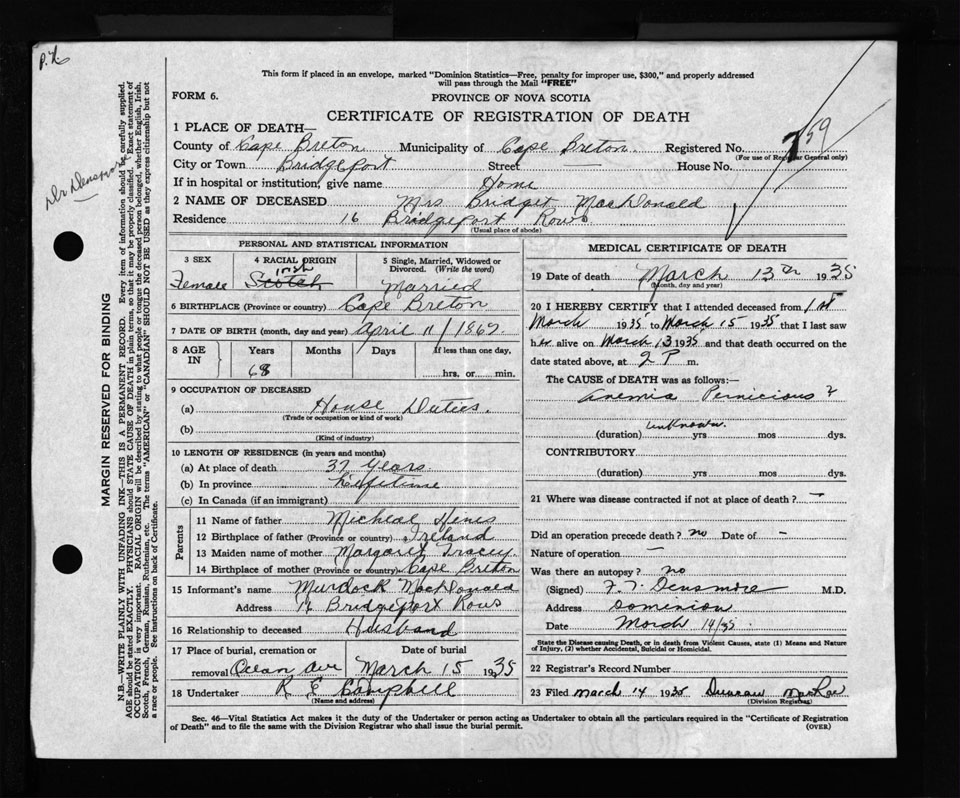 This form if placed in an envelope, marked "Dominion Statistics—Free, penalty for improper use, $300," and properly addressed
will pass through the Mail "FREE"
FORM 6.
PROVINCE OF NOVA SCOTIA
CERTIFICATE OF REGISTRATION OF DEATH
1 PLACE OF DEATH—
County of Cape Breton Municipality of Cape Breton Registered No. 759
(For use of Registrar General only)
City or Town Bridgeport Street — House No.
If in hospital or institution, give name Home
2 NAME OF DECEASED Mrs Bridget MacDonald
Residence 16 Bridgeport Rows
(Usual place of abode)
PERSONAL AND STATISTICAL INFORMATION
3 SEX
Female
4 RACIAL ORIGIN
Irish
Scotch
5 Single, Married, Widowed or
Divorced. (Write the word)
Married
6 BIRTHPLACE (Province or country) Cape Breton
7 DATE OF BIRTH (month, day and year) April 11/1867.
8 AGE IN
Years Months Days If less than one day,
68 hrs. or min.
9 OCCUPATION OF DECEASED
(a) House Duties.
(Trade or occupation or kind of work)
(b)
(Kind of industry)
10 LENGTH OF RESIDENCE (in years and months)
(a) At place of death 37 Years
(b) In province Lifetime
(c) In Canada (if an immigrant)
Parents
11 Name of father Micheal Hines
12 Birthplace of father (Province or country) Ireland
13 Maiden name of mother Margaret Tracey.
14 Birthplace of mother (Province or country) Cape Breton
15 Informant's name Murdock MacDonald
Address 16 Bridgeport Rows
16 Relationship to deceased Husband
17 Place of burial, cremation or Date of burial
removal Ocean Ave March 15 1935
18 Undertaker R E Campbell
(Name and address)
MEDICAL CERTIFICATE OF DEATH
19 Date of death March 13th 1935
(Month, day and year)
20 I HEREBY CERTIFY that I attended deceased from 1st
March 1935 to March 15 1935 that I last saw
her alive on March 13 1935 and that death occurred on the
date stated above, at 2 P m.
The CAUSE of DEATH was as follows:—
Anemia Pernicious ?
unknown.
(duration) yrs mos dys.
CONTRIBUTORY
(duration) yrs mos dys.
21 Where was disease contracted if not at place of death? —
Did an operation precede death? no Date of —
Nature of operation —
Was there an autopsy? no
(Signed) F. T. Densmore M.D.
Address Dominion
Date March 14/35
State the Disease causing Death, or in death from Violent Causes, state (1) Means and Nature
of Injury, (2) whether Accidental, Suicidal or Homicidal.
22 Registrar's Record Number
23 Filed March 14 1935 Duncan MacRae
(Division Registrar)
Sec. 46—Vital Statistics Act makes it the duty of the Undertaker or person acting as Undertaker to obtain all the particulars required in the "Certificate of Registration
of Death" and to file the same with the Division Registrar who shall issue the burial permit.
(OVER)
MARGIN RESERVED FOR BINDING
N.B.—WRITE PLAINLY WITH UNFADING INK—THIS IS A PERMANENT RECORD. Every item of information should be carefully supplied.
AGE should be stated EXACTLY. PHYSICIANS should STATE CAUSE OF DEATH in plain terms, so that it may be properly classified. Exact statement of
OCCUPATION is very important. RACIAL ORIGIN will be described by stating to what people or tongue the deceased person belonged, whether English, Irish,
Scotch, French, German, Russian, Ruthenian, etc. The terms "AMERICAN" or "CANADIAN" SHOULD NOT BE USED as they express citizenship but not
a race or people. See instructions on back of Certificate.
Dr Densmore